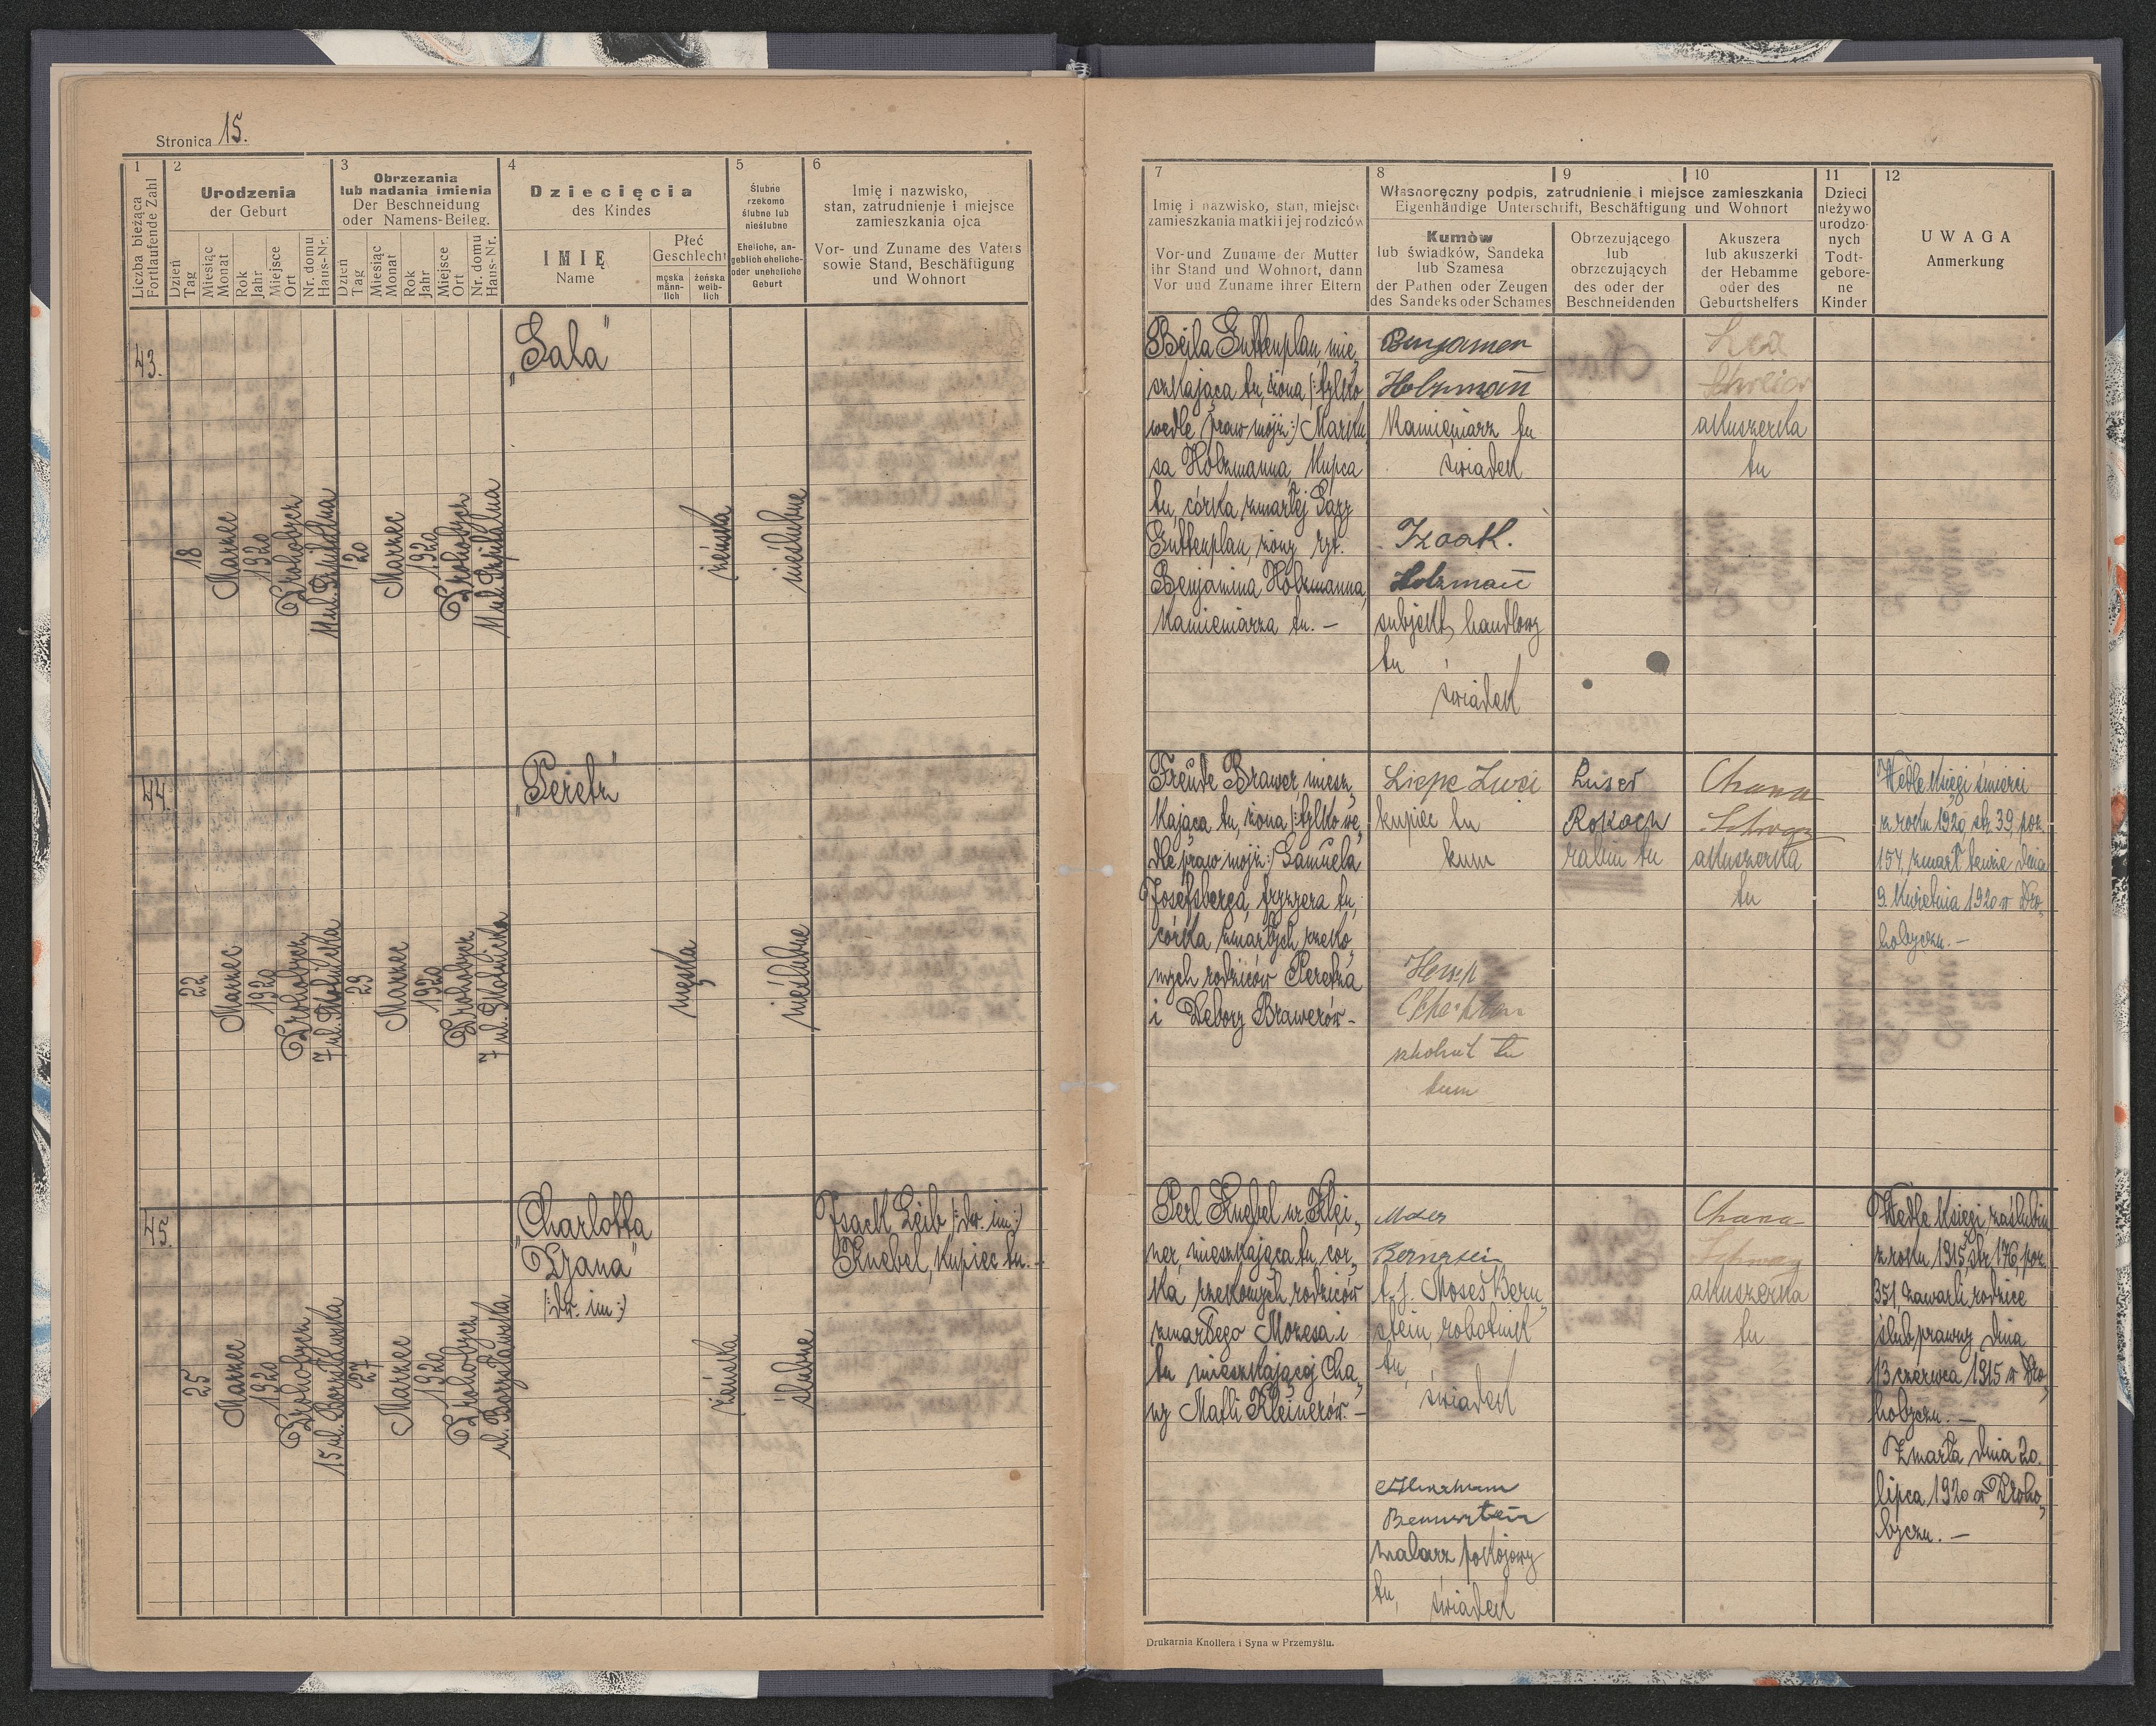 Stronica 15.
1
Liczba bieżąca
Fortlaufende Zahl
2
Urodzenia
der Geburt
Dzień
Tag
Miesiąc
Monat
Rok
Jahr
Miejsce
Ort
Nr. domu
Haus-Nr.
3
Obrzezania
lub nadania imienia
Der Beschneidung
oder Namens-Beileg.
Dzień
Tag
Miesiąc
Monat
Rok
Jahr
Miejsce
Ort
Nr. domu
Haus-Nr.
4
Dziecięcia
des Kindes
IMIĘ
Name
Płeć
Geschlecht
męska
männ-
lich
żeńska
weib-
lich
5
Ślubne
rzekomo
ślubne lub
nieślubne
Eheliche, an-
geblich eheliche-
oder uneheliche
Geburt
6
Imię i nazwisko,
stan, zatrudnienie i miejsce
zamieszkania ojca
Vor- und Zuname des Vaters
sowie Stand, Beschäftigung
und Wohnort
7
Imię i nazwisko, stan, miejsce
zamieszkania matki i jej rodziców
Vor-und Zuname der Mutter
ihr Stand und Wohnort, dann
Vor und Zuname ihrer Eltern
8
9
10
Własnoręczny podpis, zatrudnienie i miejsce zamieszkania
Eigenhändige Unterschrift, Beschäftigung und Wohnort
Kumów
lub świadków, Sandeka
lub Szamesa
der Pathen oder Zeugen
des Sandeks oder Schames
Obrzezującego
lub
obrzezujących
des oder der
Beschneidenden
Akuszera
lub akuszerki
der Hebamme
oder des
Geburtshelfers
11
Dzieci
nieżywo
urodzo-
nych
Todt-
gebore-
ne
Kinder
12
UWAGA
Anmerkung
43.
18
Marzec
1920
Drohobycz
20
Marzec
1920
Drohobycz
„Sala"
żeńska
nieślubne
Bejla Guttenplan, mie„
szkająca tu, żona /:tylko
wedle praw mojż:/ Marku„
sa Holzmanna, kupca
tu, córka zmarłej Sary
Guttenplan, żony ryt.
Benjamina Holzmanna,
kamieniarza tu. —
Benjamen
Holzman̄
kamieniarz tu
świadek
Izaak.
Holzman̄
subjekt handlowy
tu
świadek
Lea
akuszerka
tu
44.
22
Marzec
1920
Drohobycz
29
Marzec
1920
Drohobycz
„Peretz"
męska
nieślubne
Freude Brawer, miesz„
kająca tu, żona /:tylko we„
dle praw mojż:/ Samuela
Josefsberga, fryzyera tu,
córka zmarłych rzeko„
mych rodziców Peretza
i Debory Brawerów —
kupiec tu
kum
tu
kum
Rokach
rabin tu
Chana
akuszerka
tu
Wedle księgi śmierci
z roku 1920 str. 39, poz.
157, zmarł tenże dnia
9. kwietnia 1920 w Dro„
hobyczu. —
45.
25
Marzec
1920
Drohobycz
15 ul. Borysławska
27
Marzec
1920
Drohobycz
ul. Borysławska
„Charlotta
Dyana"
/:dw. im:/
żeńska
ślubne
Isack Leib /:dw. im:/
Knebel, kupiec tu. —
Perl Knebel ur. Klei„
ner, mieszkająca tu, cór„
ka rzekomych rodziców
zmarłego Mozesa i
tu mieszkającej Cha„
ny Matli Kleinerów. —
Moses
t. j. Moses Bern„
stein, robotnik
tu,
świadek
malarz pokojowy
tu, świadek
Chana
akuszerka
tu
Wedle księgi zaślubin
z roku 1915, str. 176, poz.
351, zawarli rodzice
ślub prawny dnia
13 czerwca 1915 w Dro„
hobyczu. —
Zmarła dnia 20.
lipca 1920 w Droho„
byczu. —
Drukarnia Knollera i Syna w Przemyślu.